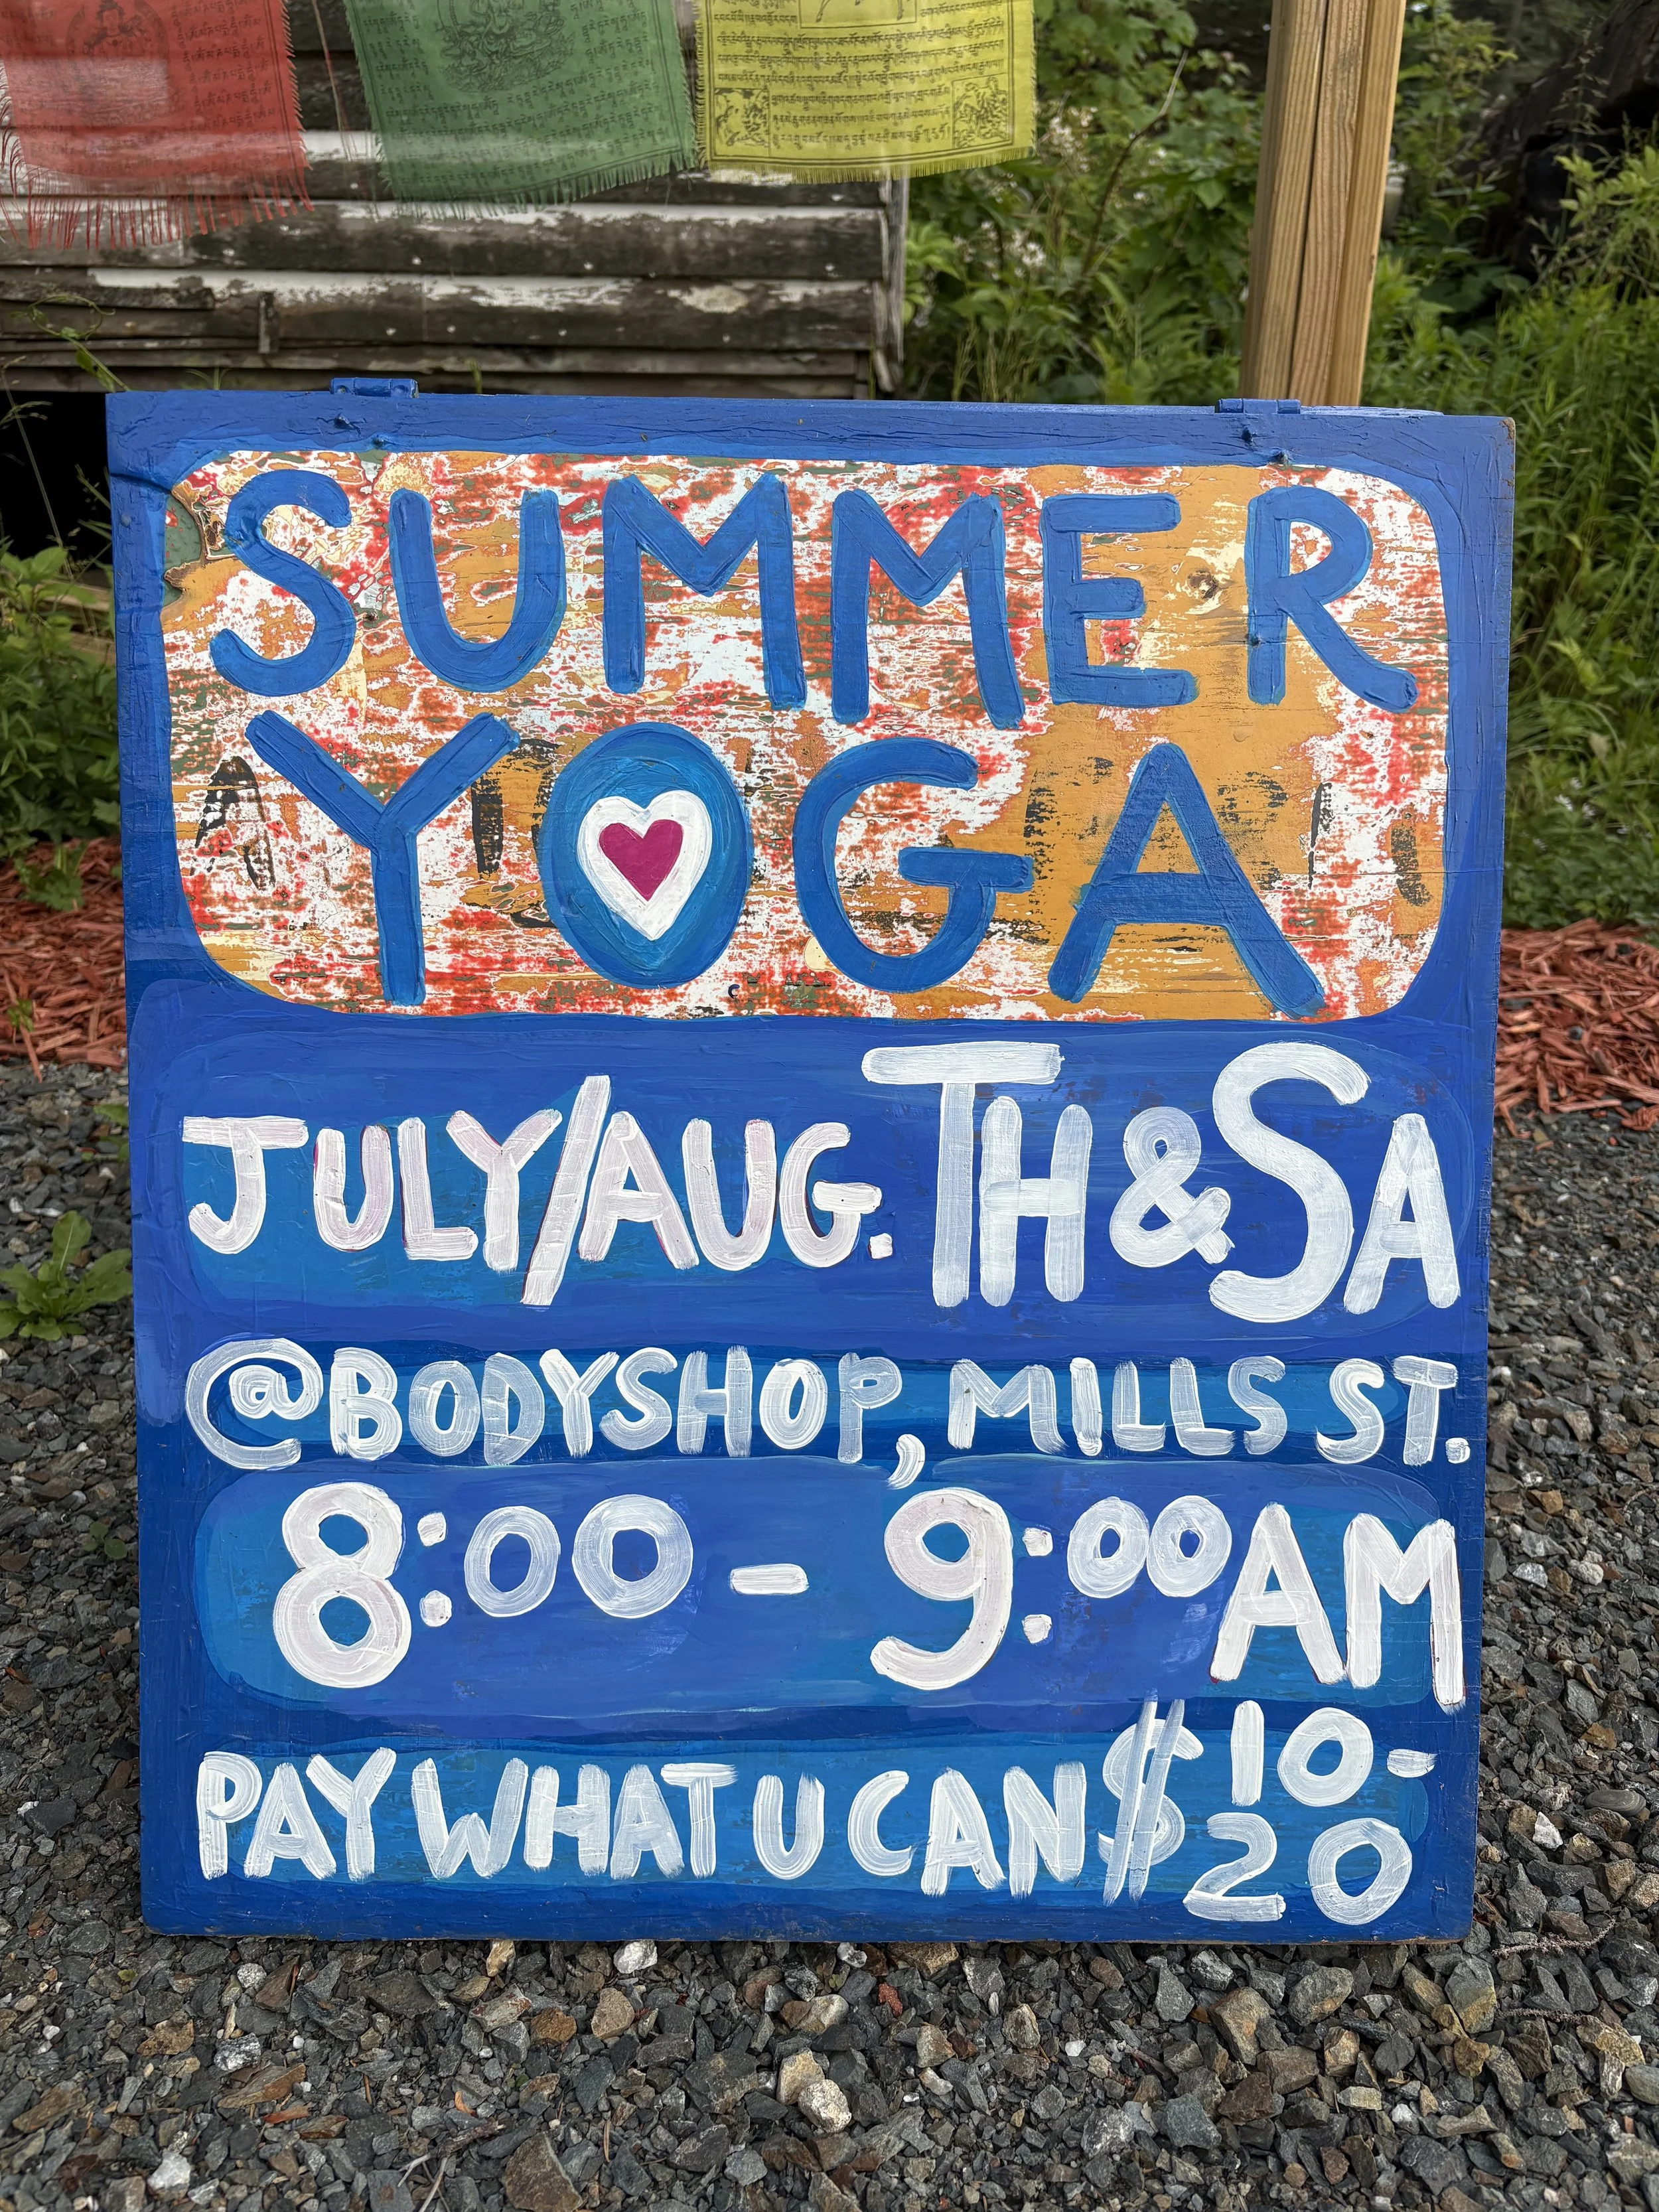 SUMMER
YOGA
JULY/AUG. TH & SA
@BODYSHOP, MILLS ST.
8:00 - 9:00 AM
PAY WHAT U CAN $10-
20